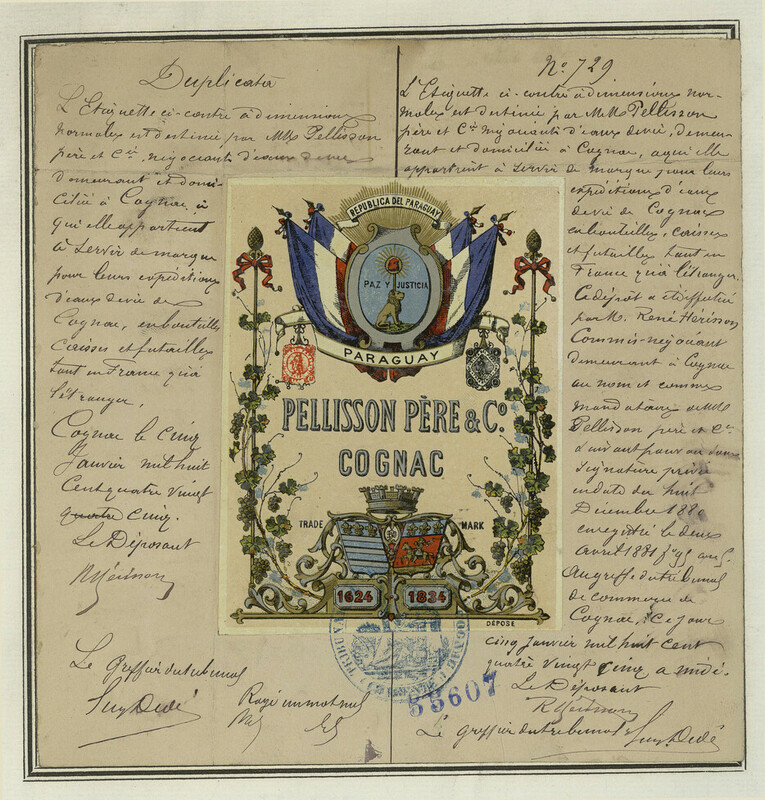 Duplicata
L'Etiquette ci-contre à dimensions
normales est destinée par MM. Pellisson
père et Cie, négociants d'eaux de vie
demeurant et domi-
ciliés à Cognac, à
qui elle appartient
à servir de marque
pour leurs expéditions
d'eaux de vie de
Cognac, en bouteilles,
caisses et futailles
tant en France qu'à
l'étranger.
Cognac le cinq
Janvier mil huit
cent quatre vingt
quatre cinq.
Le Déposant
RHérisson
Le greffier du tribunal
Rayé un mot nul
No. 729
L'Etiquette ci-contre à dimensions nor-
males est destinée par MM. Pellisson
père et Cie négociants d'eaux de vie, demeu-
rant et domiciliés à Cognac, à qui elle
appartient à servir de marque pour leurs
expéditions d'eaux
de vie de Cognac
en bouteilles, caisses
et futailles tant en
France qu'à l'étranger.
Ce dépôt a été effectué
par M. René Hérisson
Commis-négociant
demeurant à Cognac
au nom et comme
mandataire de MM.
Pellisson père et Cie
suivant pouvoir sous
signature privée
en date du huit
Décembre 1880
enregistré le deux
avril 1881
Au greffe du tribunal
de commerce de
Cognac, ce jour
cinq Janvier mil huit cent
quatre vingt cinq à midi.
Le Déposant
RHérisson
Le greffier du tribunal
REPUBLICA DEL PARAGUAY
PAZ Y JUSTICIA
PARAGUAY
PELLISSON PÈRE & Co.
COGNAC
TRADE MARK
1624 1834
DÉPOSÉ
55607